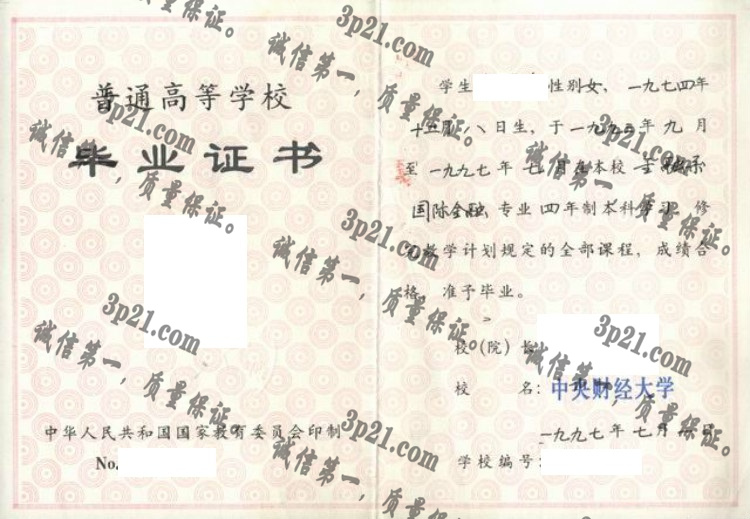 普通高等学校
毕业证书
中华人民共和国国家教育委员会印制
No.
学生 性别女, 一九七四年
十二月八日生, 于一九九三年九月
至一九九七年七月在本校
国际金融 专业四年制本科学习, 修
完教学计划规定的全部课程, 成绩合
格, 准予毕业。
校(院)长
校 名: 中央财经大学
一九九七年七月 日
学校编号:
3p21.com
诚信第一, 质量保证。
3p21.com
诚信第一, 质量保证。
3p21.com
诚信第一, 质量保证。
3p21.com
诚信第一, 质量保证。
3p21.com
诚信第一, 质量保证。
3p21.com
诚信第一, 质量保证。
3p21.com
诚信第一, 质量保证。